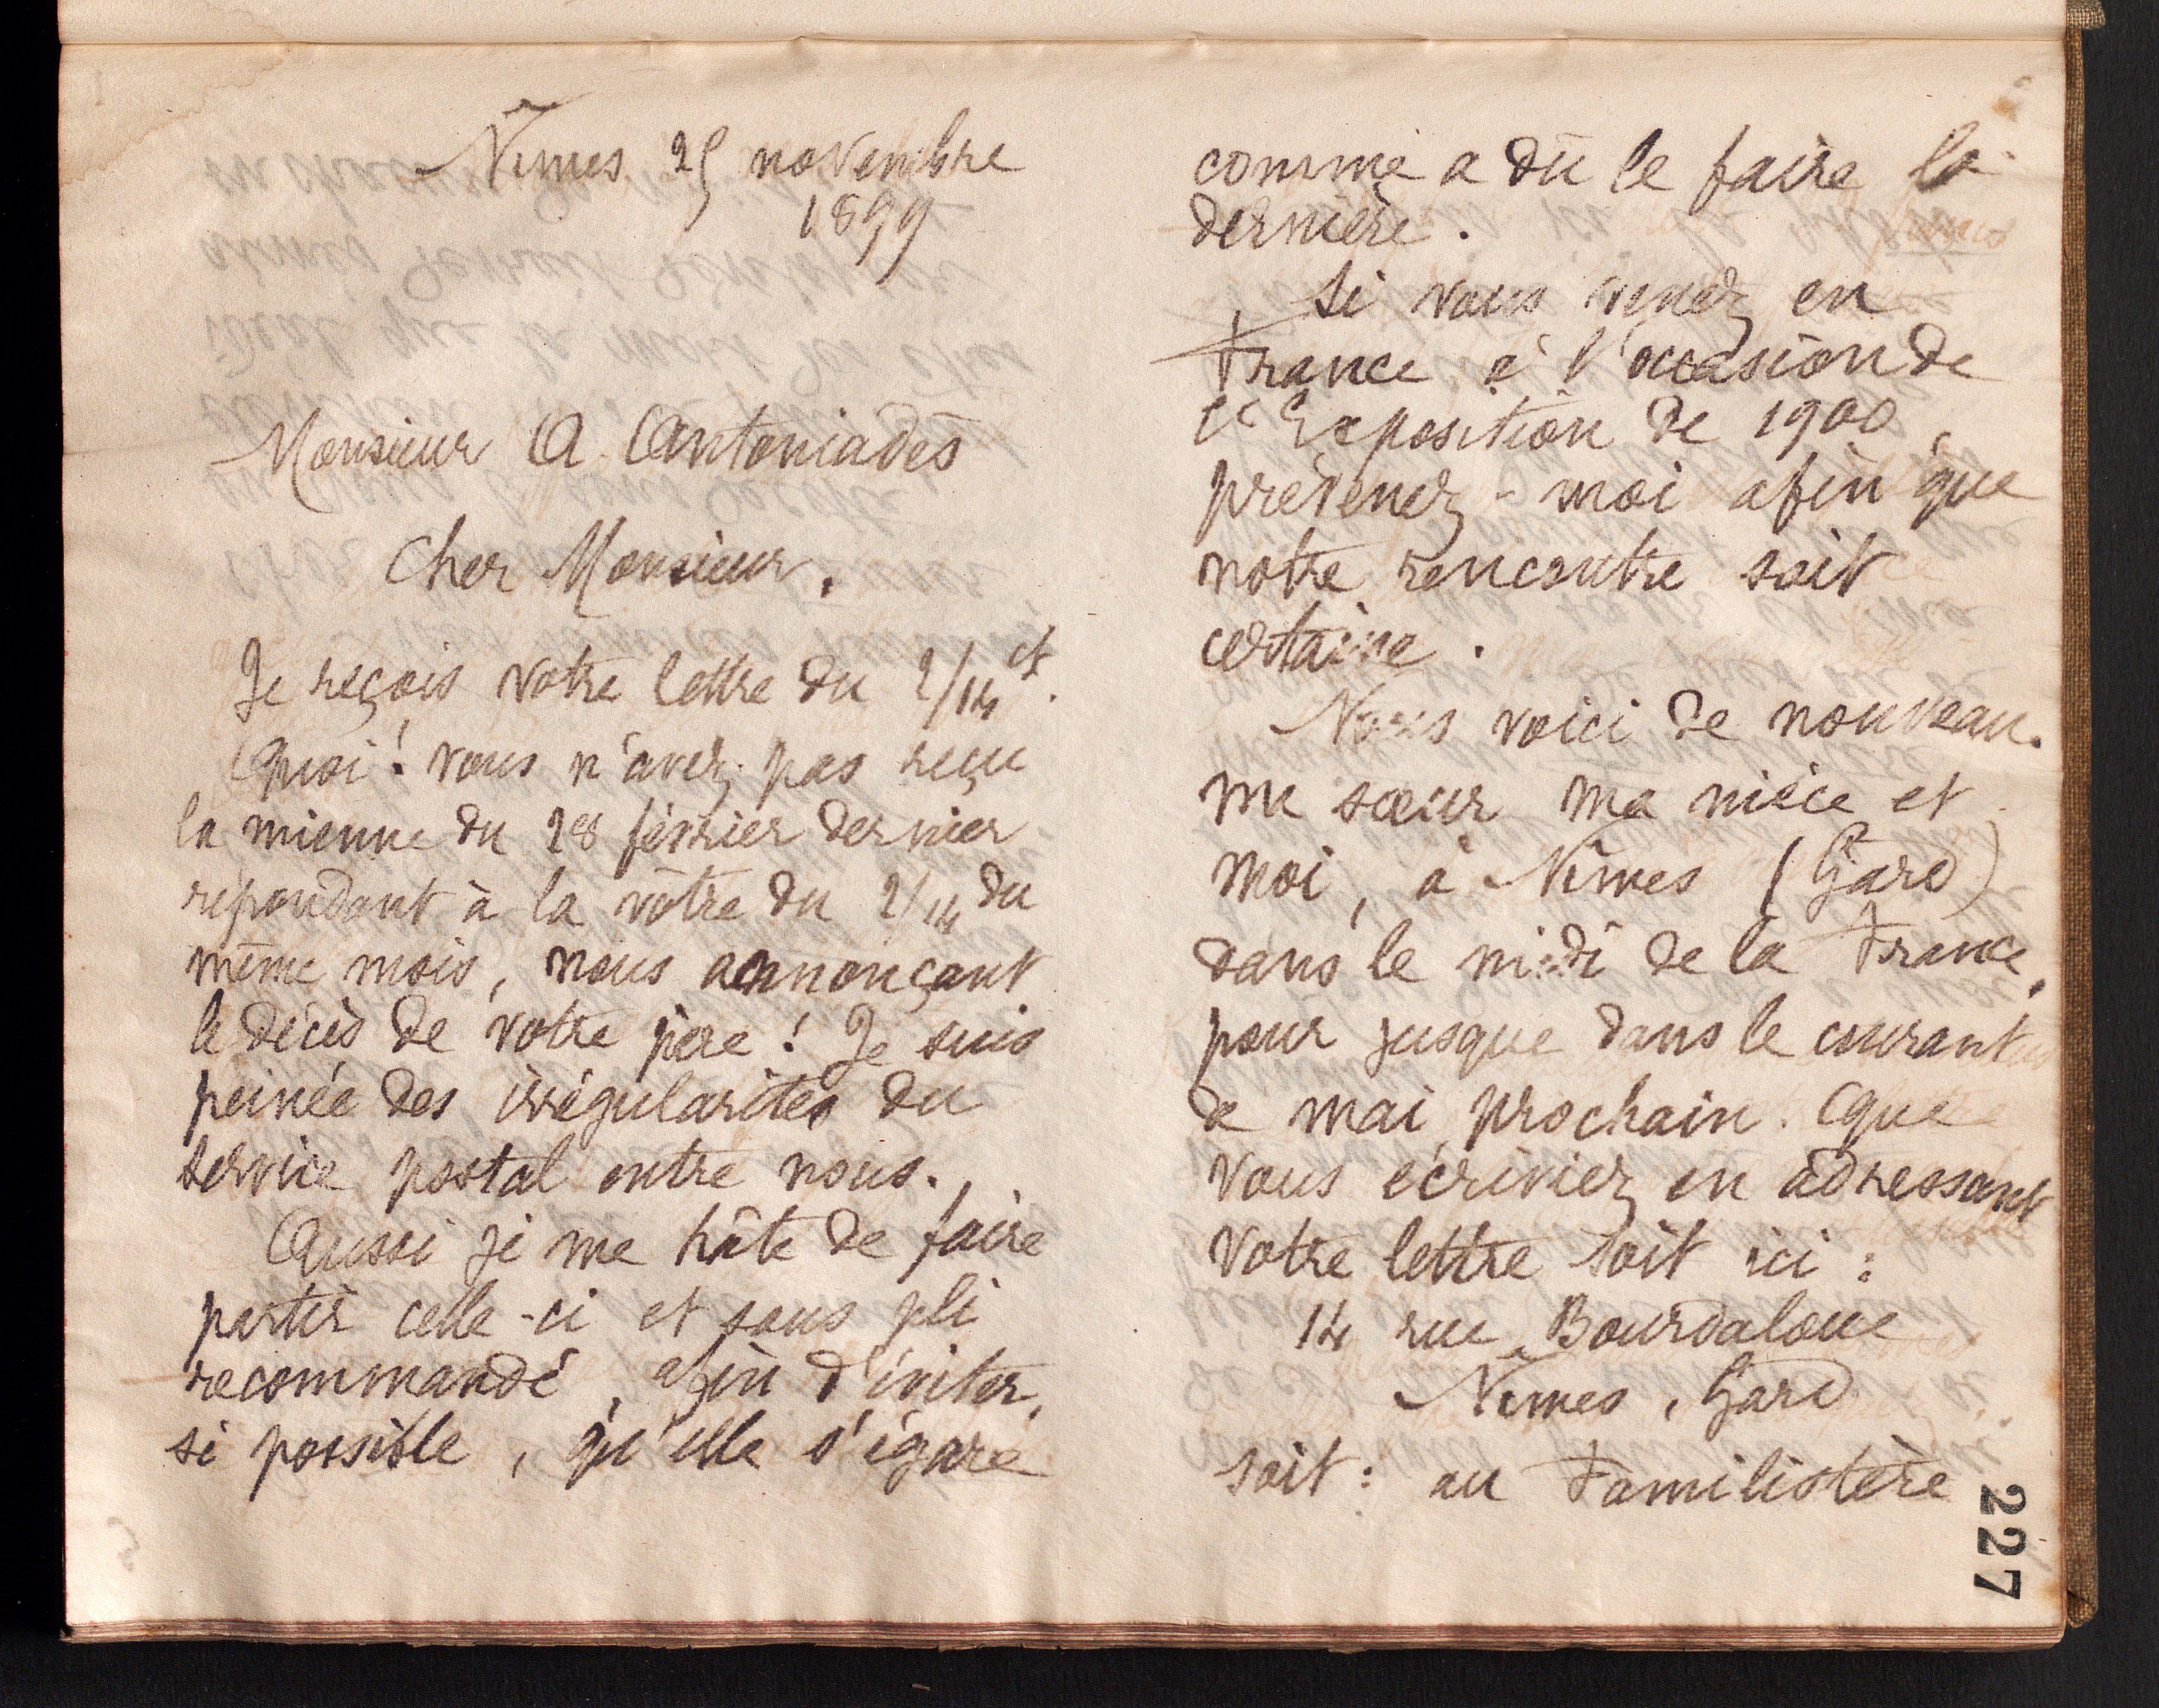 Nîmes 25 novembre
1899
Monsieur A. Antoniadès
Cher Monsieur,
Je reçois votre lettre du 2/14 ct.
Quoi ! vous n'avez pas reçu
la mienne du 28 février dernier
répondant à la vôtre du 2/14 du
même mois, nous annonçant
le décès de votre père ! Je suis
peinée des irrégularités du
service postal entre nous.
Aussi je me hâte de faire
partir celle-ci et sous pli
recommandé, afin d'éviter,
si possible, qu'elle s'égare
comme a dû le faire la
dernière.
Si vous venez en
France à l'occasion de
l'Exposition de 1900,
prévenez-moi afin que
notre rencontre soit
certaine.
Nous voici de nouveau,
ma sœur ma nièce et
moi, à Nîmes (Gard)
dans le midi de la France,
pour jusque dans le courant
de mai prochain. Que
vous écriviez en adressant
votre lettre soit ici :
14 rue Bourdaloue
Nîmes, Gard
soit : au Familistère
227